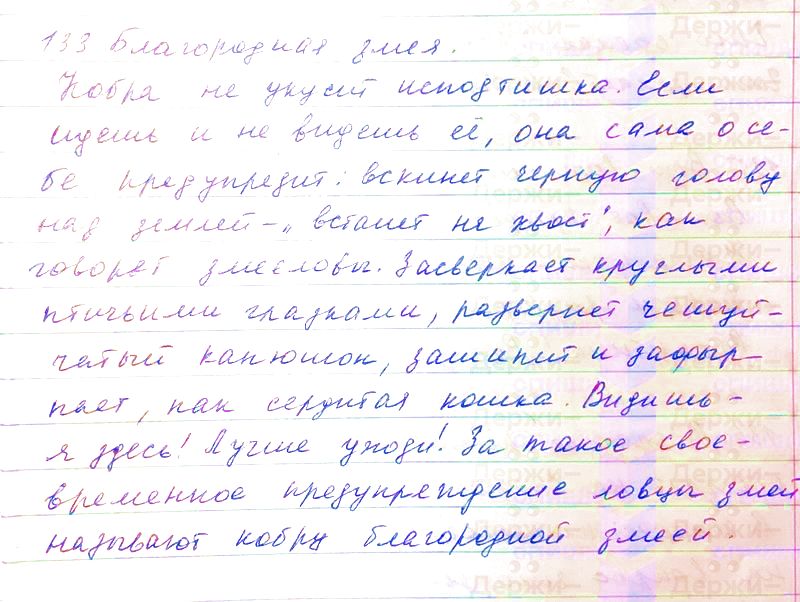 133 Благородная змея.
Кобра не укусит исподтишка. Если
идёшь и не видишь её, она сама о се-
бе предупредит: вскинет черную голову
над землей - „встанет не хвост", как
говорят змееловы. Засверкает круглыми
птичьими глазками, развернет чешуй-
чатый капюшон, зашипит и зафыр-
кает, как сердитая кошка. Видишь -
я здесь! Лучше уходи! За такое свое-
временное предупреждение ловцы змей
называют кобру благородной змеей.